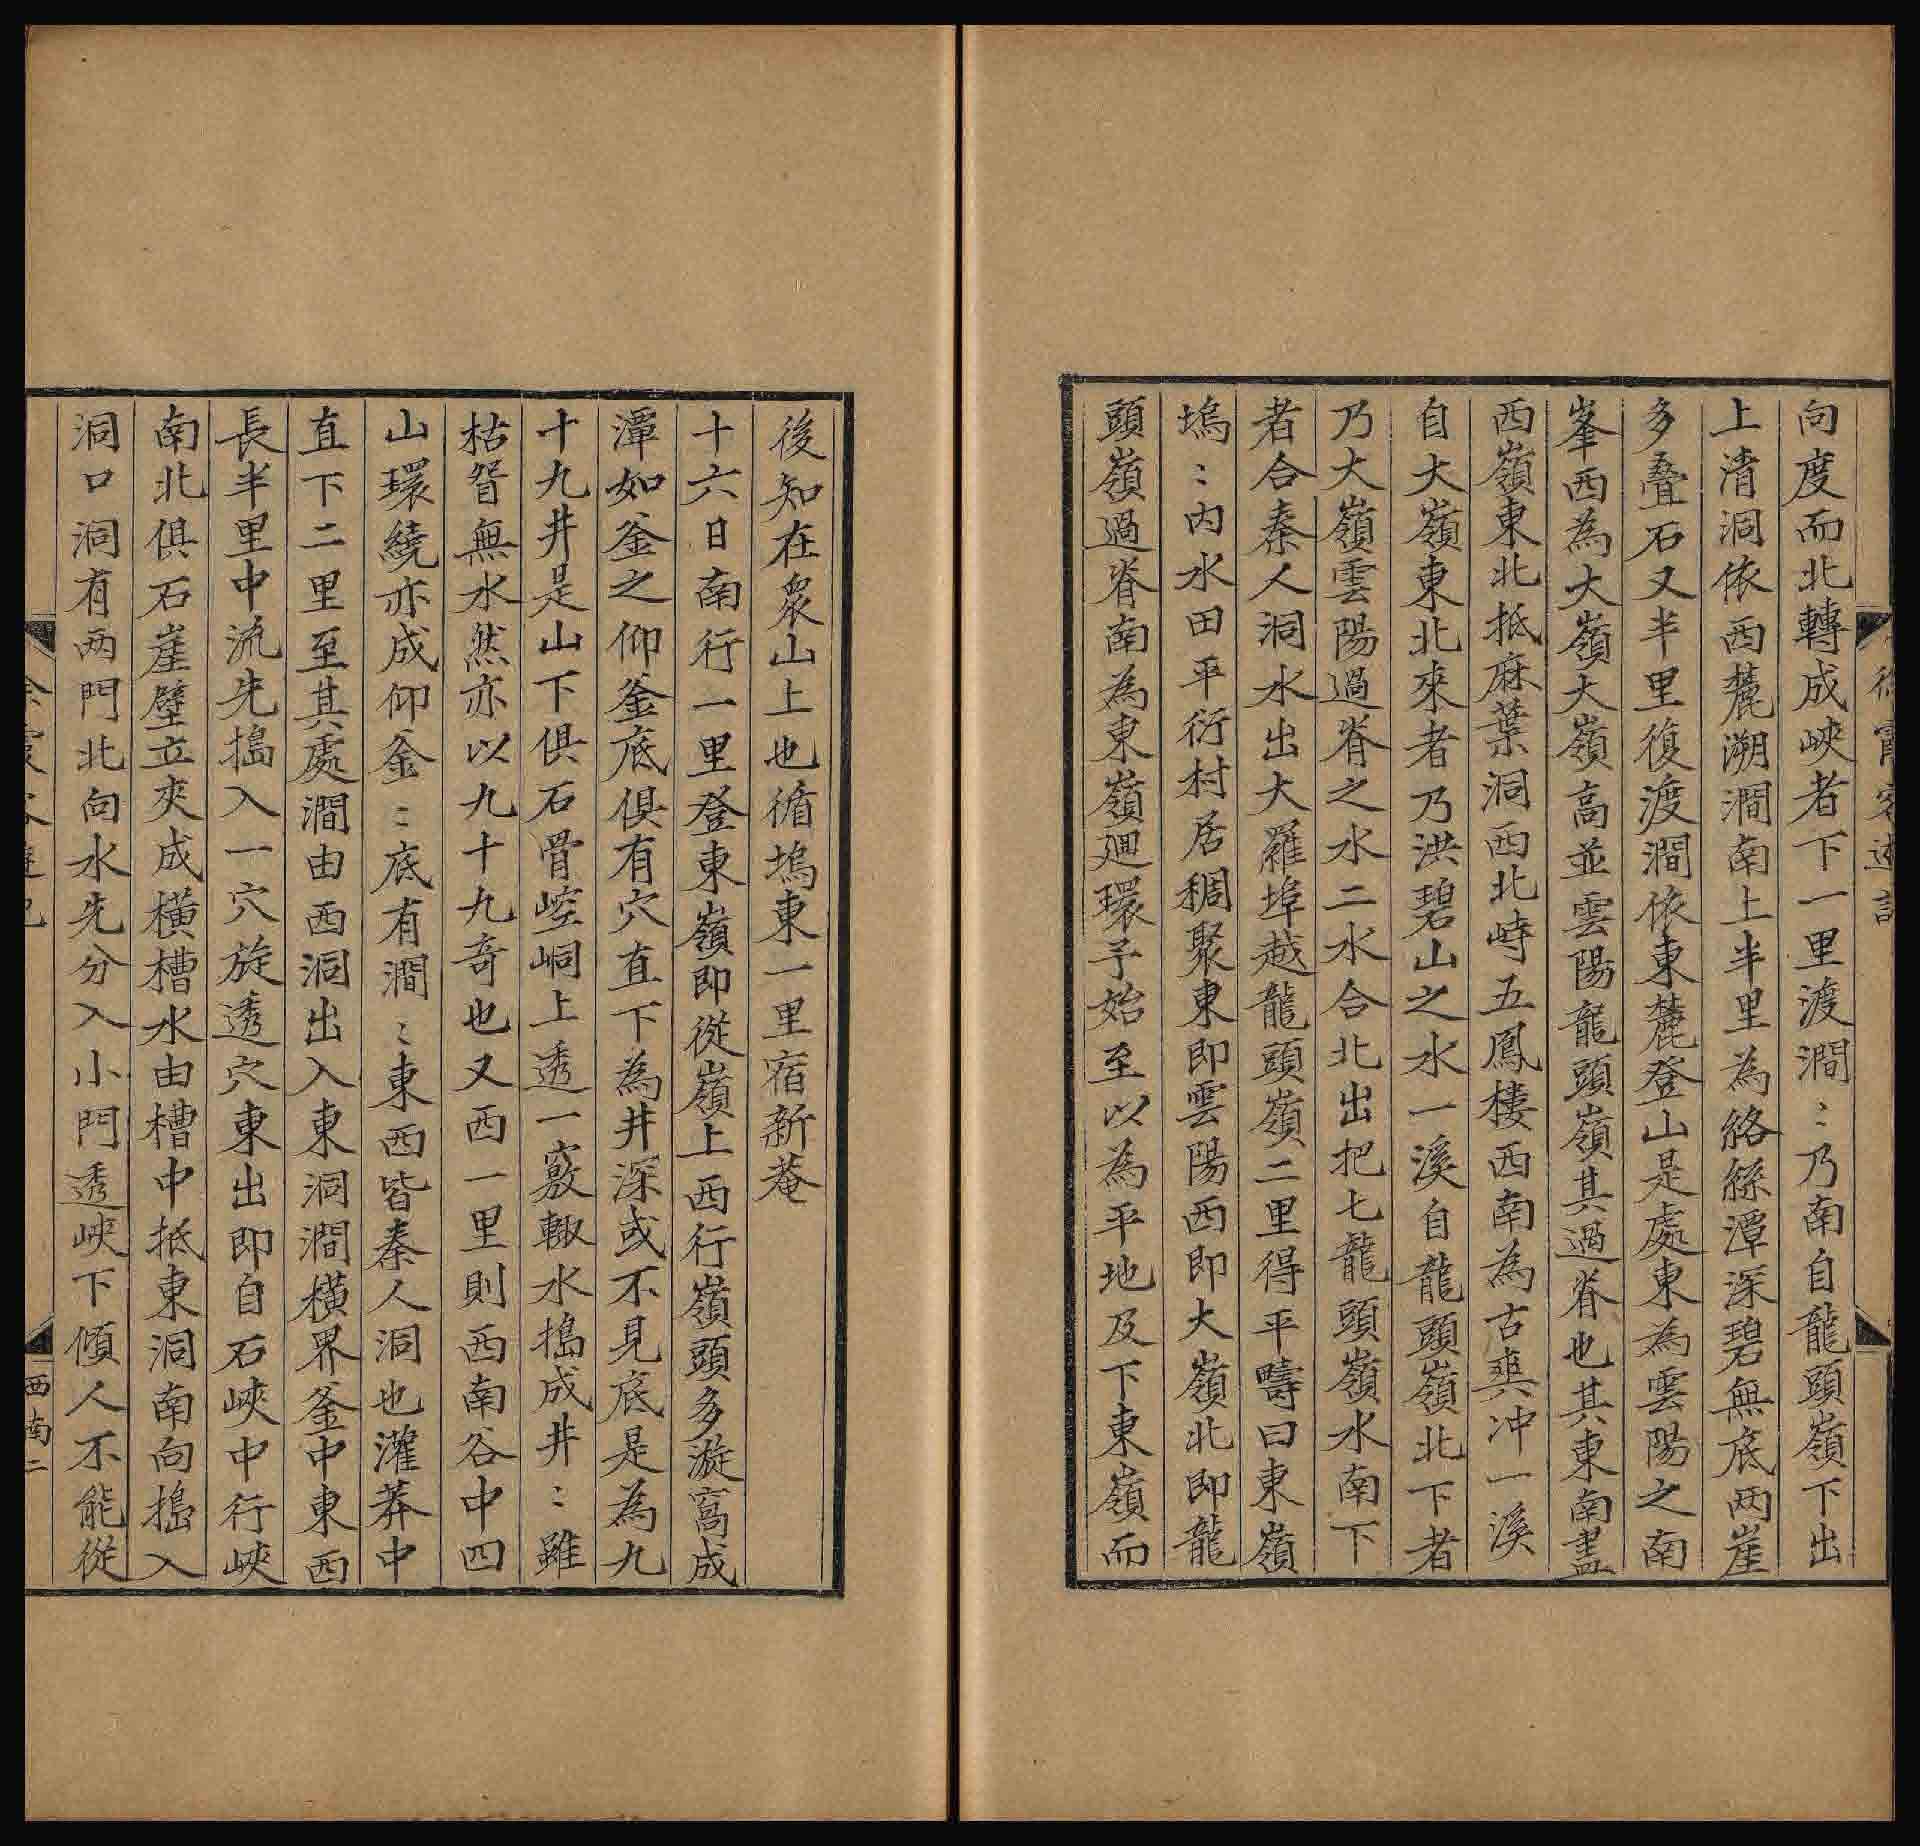 徐霞客遊記
向度而北轉成峽者下一里渡澗〻乃南自龍頭嶺下出
上清洞依西麓溯澗南上半里為絡絲潭深碧無底兩崖
多疊石又半里復渡澗依東麓登山是處東為雲陽之南
峯西為大嶺大嶺高並雲陽龍頭嶺其過脊也其東南盡
西嶺東北抵麻葉洞西北峙五鳳樓西南為古爽冲一溪
自大嶺東北來者乃洪碧山之水一溪自龍頭嶺北下者
乃大嶺雲陽過脊之水二水合北出把七龍頭嶺水南下
者合秦人洞水出大羅埠越龍頭嶺二里得平疇曰東嶺
塢〻內水田平衍村居稠聚東即雲陽西即大嶺北即龍
頭嶺過脊南為東嶺廻環予始至以為平地及下東嶺而
後知在衆山上也循塢東一里宿新菴
十六日南行一里登東嶺即從嶺上西行嶺頭多漩窩成
潭如釜之仰釜底俱有穴直下為井深或不見底是為九
十九井是山下俱石骨崆峒上透一竅輙水搗成井〻雖
枯眢無水然亦以九十九奇也又西一里則西南谷中四
山環繞亦成仰釜〻底有澗〻東西皆秦人洞也灌莽中
直下二里至其處澗由西洞出入東洞澗橫界釜中東西
長半里中流先搗入一穴旋透穴東出即自石峽中行峽
南北俱石崖壁立夾成橫槽水由槽中抵東洞南向搗入
洞口洞有兩門北向水先分入小門透峽下傾人不能從
徐霞客遊記
西南二